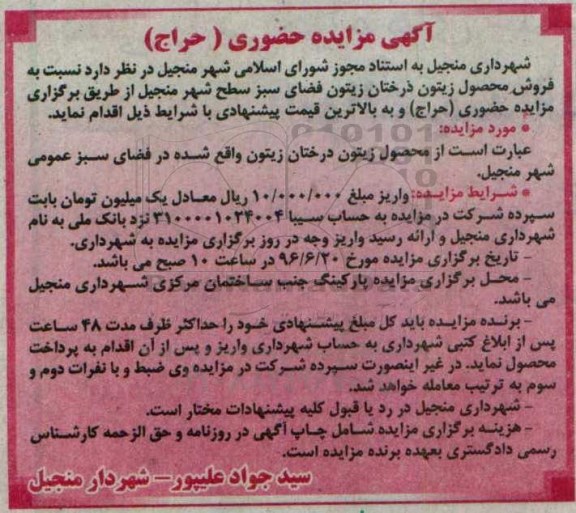 آگهی مزایده حضوری ( حراج)
شهرداری منجیل به استناد مجوز شورای اسلامی شهر منجیل در نظر دارد نسبت به
فروش محصول زیتون درختان زیتون فضای سبز سطح شهر منجیل از طریق برگزاری
مزایده حضوری (حراج) و به بالاترین قیمت پیشنهادی با شرایط ذیل اقدام نماید.
* مورد مزایده:
عبارت است از محصول زیتون درختان زیتون واقع شده در فضای سبز عمومی
شهر منجیل.
* شرایط مزایده: واریز مبلغ ۱۰/۰۰۰/۰۰۰ ریال معادل یک میلیون تومان بابت
سپرده شرکت در مزایده به حساب سیبا ۳۱۰۰۰۰۱۰۲۴۰۰۴ نزد بانک ملی به نام
شهرداری منجیل و ارائه رسید واریز وجه در روز برگزاری مزایده به شهرداری.
- تاریخ برگزاری مزایده مورخ ۹۶/۶/۲۰ در ساعت ۱۰ صبح می باشد.
- محل برگزاری مزایده پارکینگ جنب ساختمان مرکزی شهرداری منجیل
می باشد.
- برنده مزایده باید کل مبلغ پیشنهادی خود را حداکثر ظرف مدت ۴۸ ساعت
پس از ابلاغ کتبی شهرداری به حساب شهرداری واریز و پس از آن اقدام به پرداخت
محصول نماید. در غیر اینصورت سپرده شرکت در مزایده وی ضبط و با نفرات دوم و
سوم به ترتیب معامله خواهد شد.
- شهرداری منجیل در رد یا قبول کلیه پیشنهادات مختار است.
- هزینه برگزاری مزایده شامل چاپ آگهی در روزنامه و حق الزحمه کارشناس
رسمی دادگستری بعهده برنده مزایده است.
سید جواد علیپور– شهردار منجیل